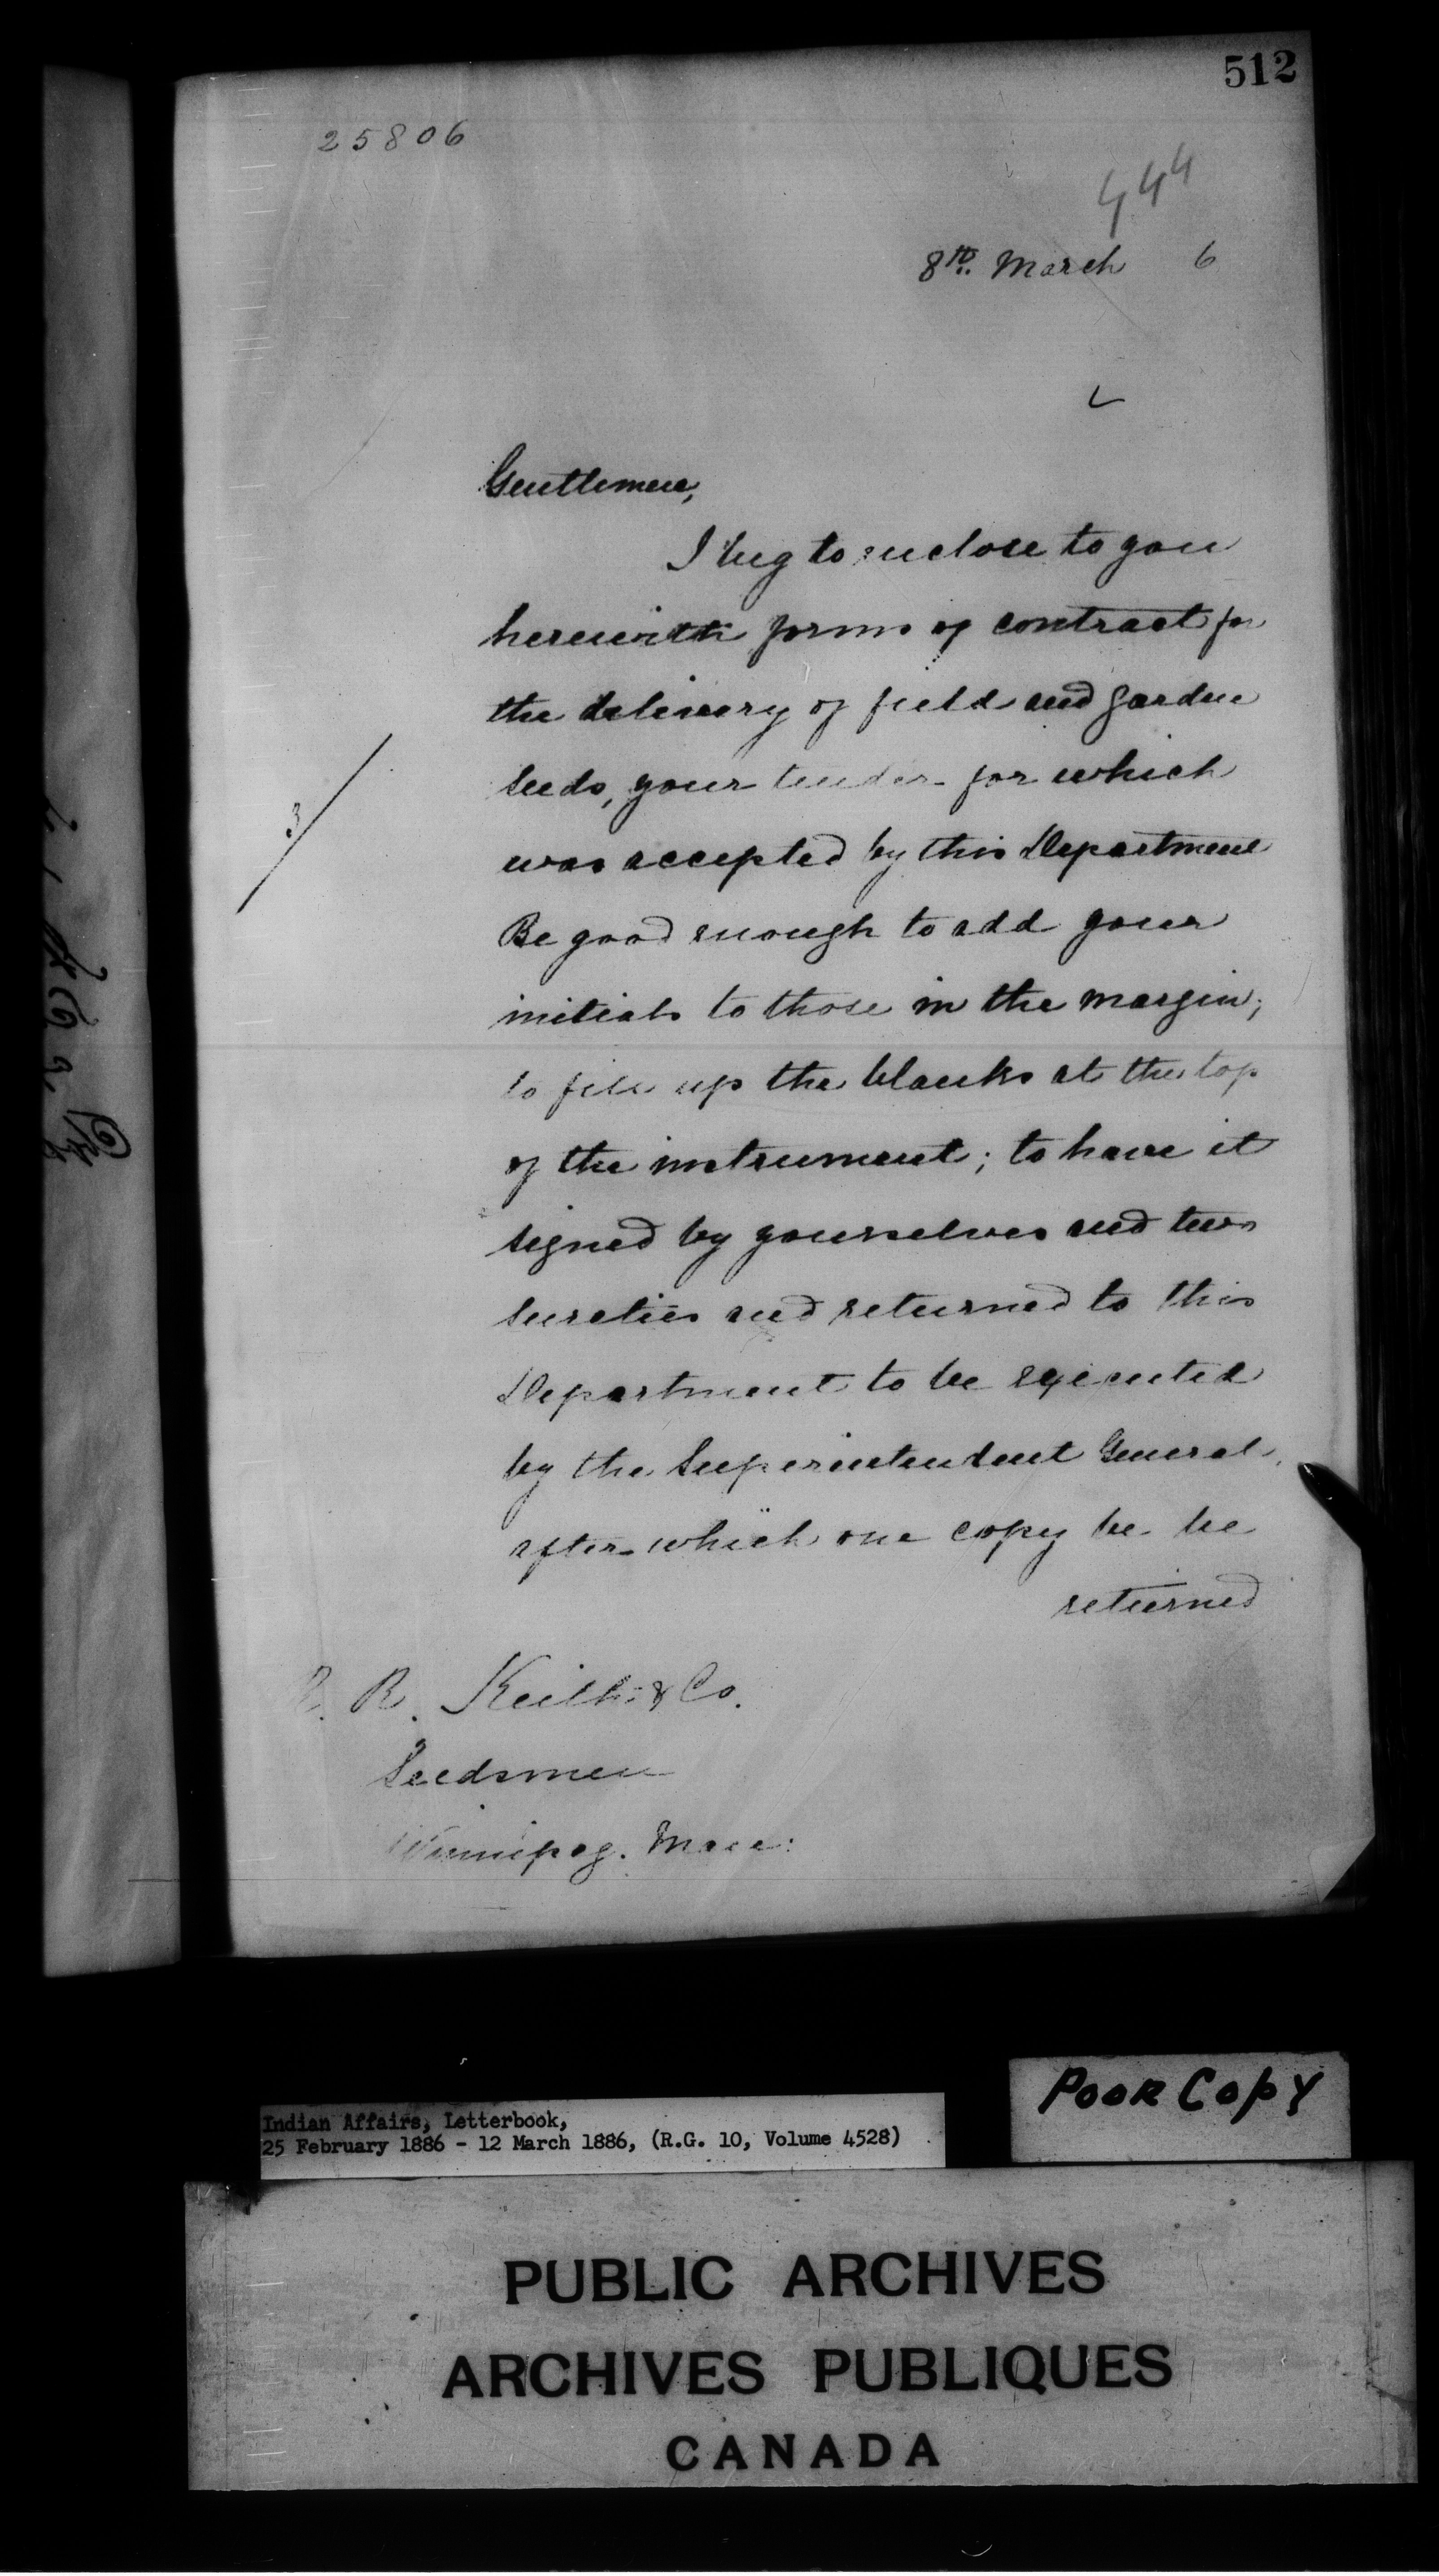 512
25806
444
8th. March 6
Gentlemen,
I beg to enclose to you
herewith forms of contract for
the delivery of field and garden
seeds, your tender for which
was accepted by this Department
Be good enough to add your
initials to those in the margin;
to fill up the blanks at the top
of the instrument; to have it
signed by yourselves and two
sureties and returned to this
Department to be executed
by the Superintendent General,
after which one copy be be
returned
3/
R. Keith & Co.
Seedsmen
Winnipeg. Man:
Poor Copy
Indian Affairs, Letterbook,
25 February 1886 - 12 March 1886, (R.G. 10, Volume 4528)
PUBLIC ARCHIVES
ARCHIVES PUBLIQUES
CANADA